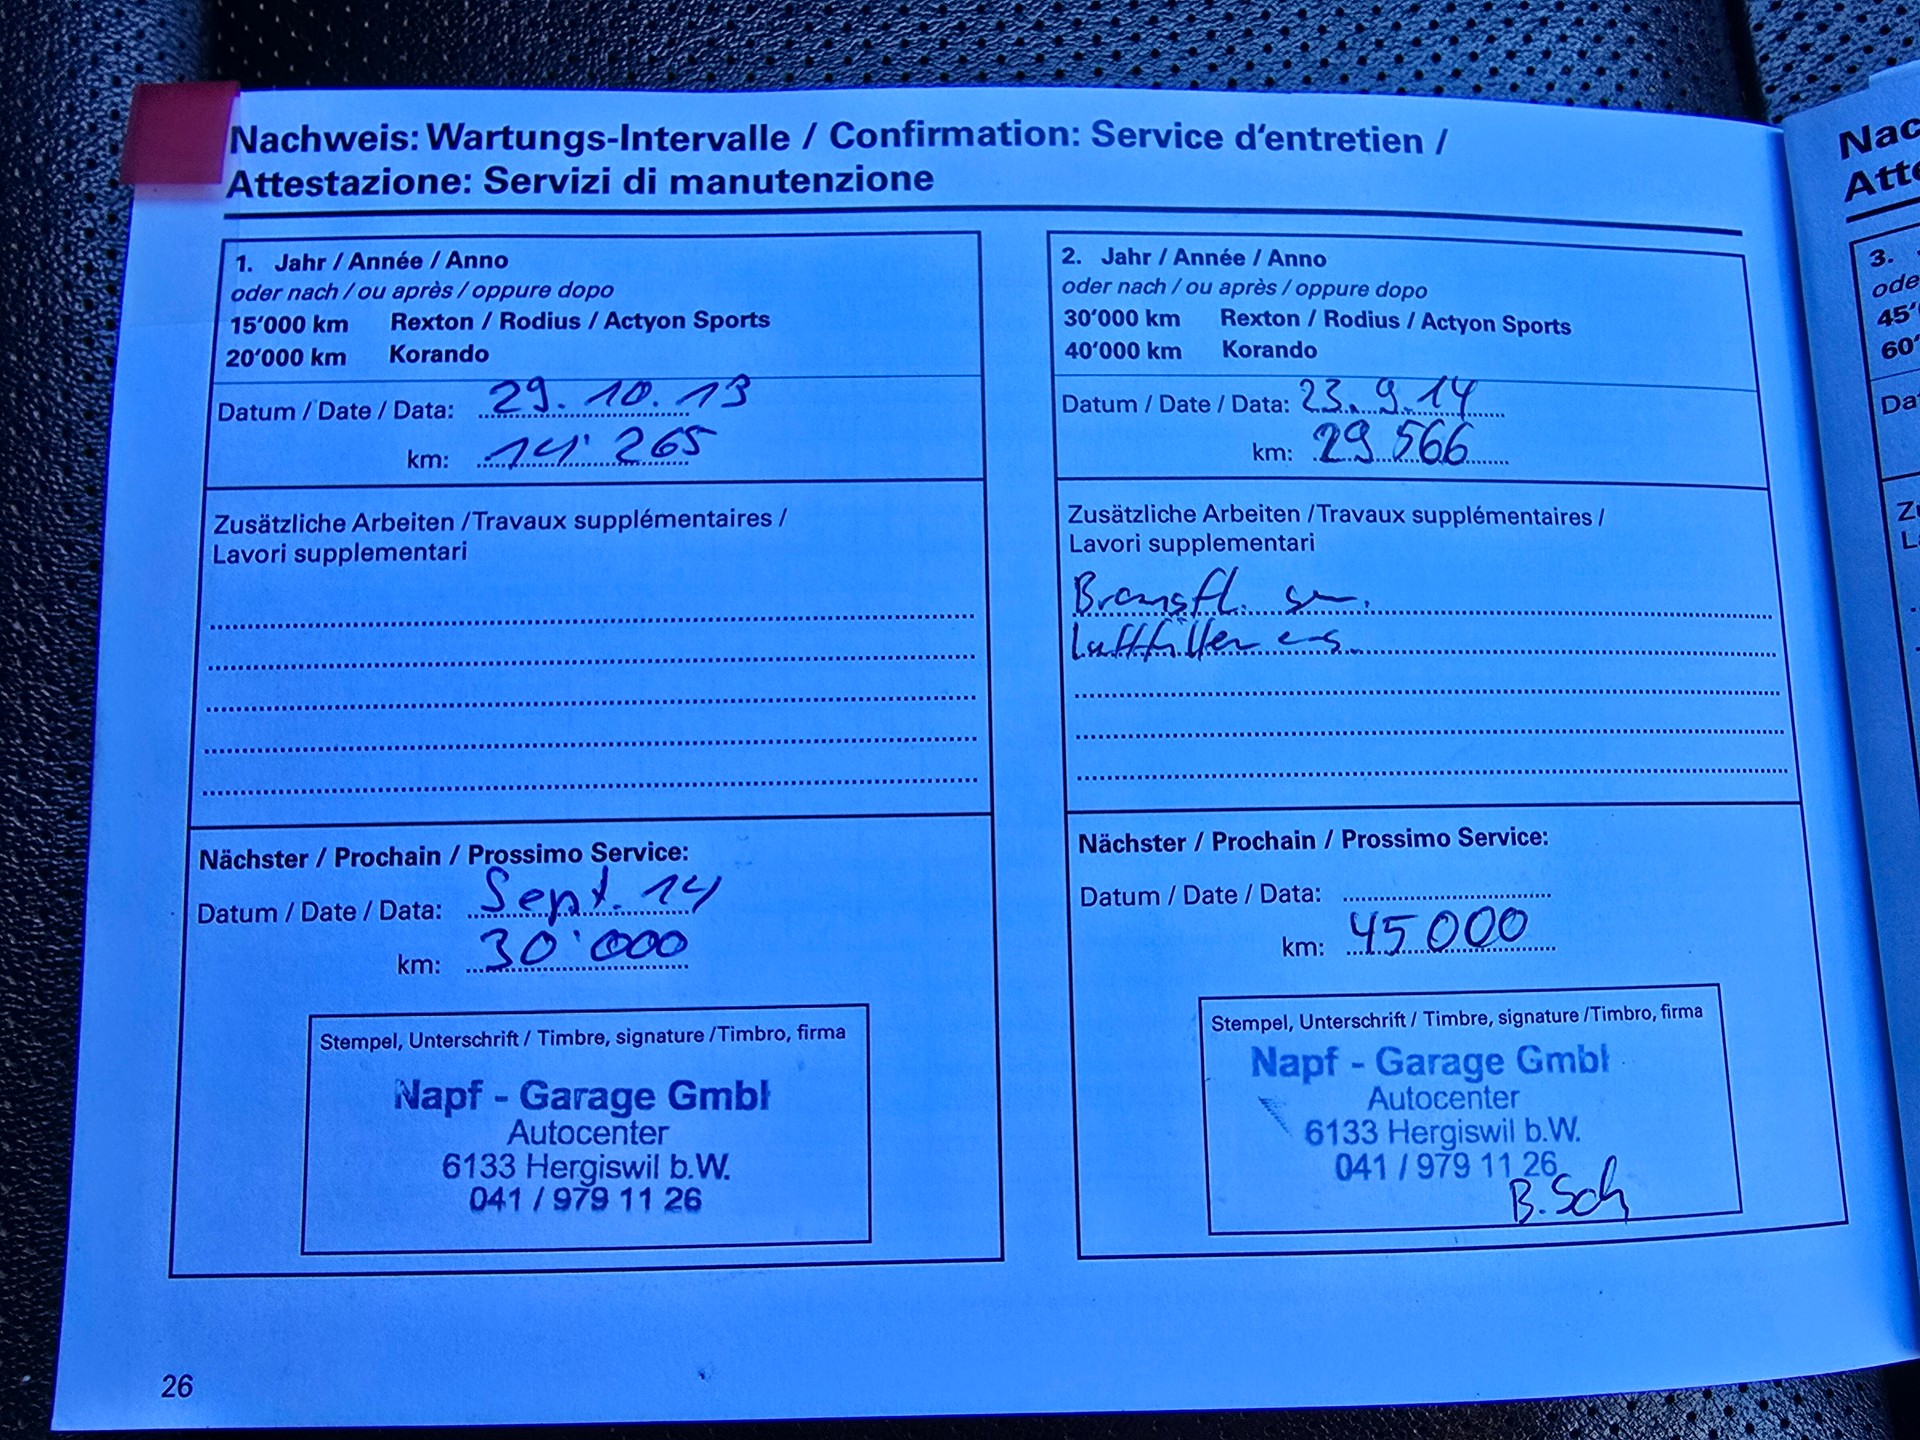 Nachweis: Wartungs-Intervalle / Confirmation: Service d'entretien /
Attestazione: Servizi di manutenzione
1. Jahr / Année / Anno
oder nach / ou après / oppure dopo
15'000 km Rexton / Rodius / Actyon Sports
20'000 km Korando
Datum / Date / Data: 29.10.13
km: 14'265
Zusätzliche Arbeiten / Travaux supplémentaires /
Lavori supplementari
Nächster / Prochain / Prossimo Service:
Datum / Date / Data: Sept. 14
km: 30'000
Stempel, Unterschrift / Timbre, signature / Timbro, firma
Napf - Garage Gmbl
Autocenter
6133 Hergiswil b.W.
041 / 979 11 26
2. Jahr / Année / Anno
oder nach / ou après / oppure dopo
30'000 km Rexton / Rodius / Actyon Sports
40'000 km Korando
Datum / Date / Data: 23.9.14
km: 29 566
Zusätzliche Arbeiten / Travaux supplémentaires /
Lavori supplementari
Bremsfl.
Luftfilter
Nächster / Prochain / Prossimo Service:
Datum / Date / Data:
km: 45 000
Stempel, Unterschrift / Timbre, signature / Timbro, firma
Napf - Garage Gmbl
Autocenter
6133 Hergiswil b.W.
041 / 979 11 26
B. Sch
26
Nac
Atte
3.
ode
45'
60'
Da
Zu
La